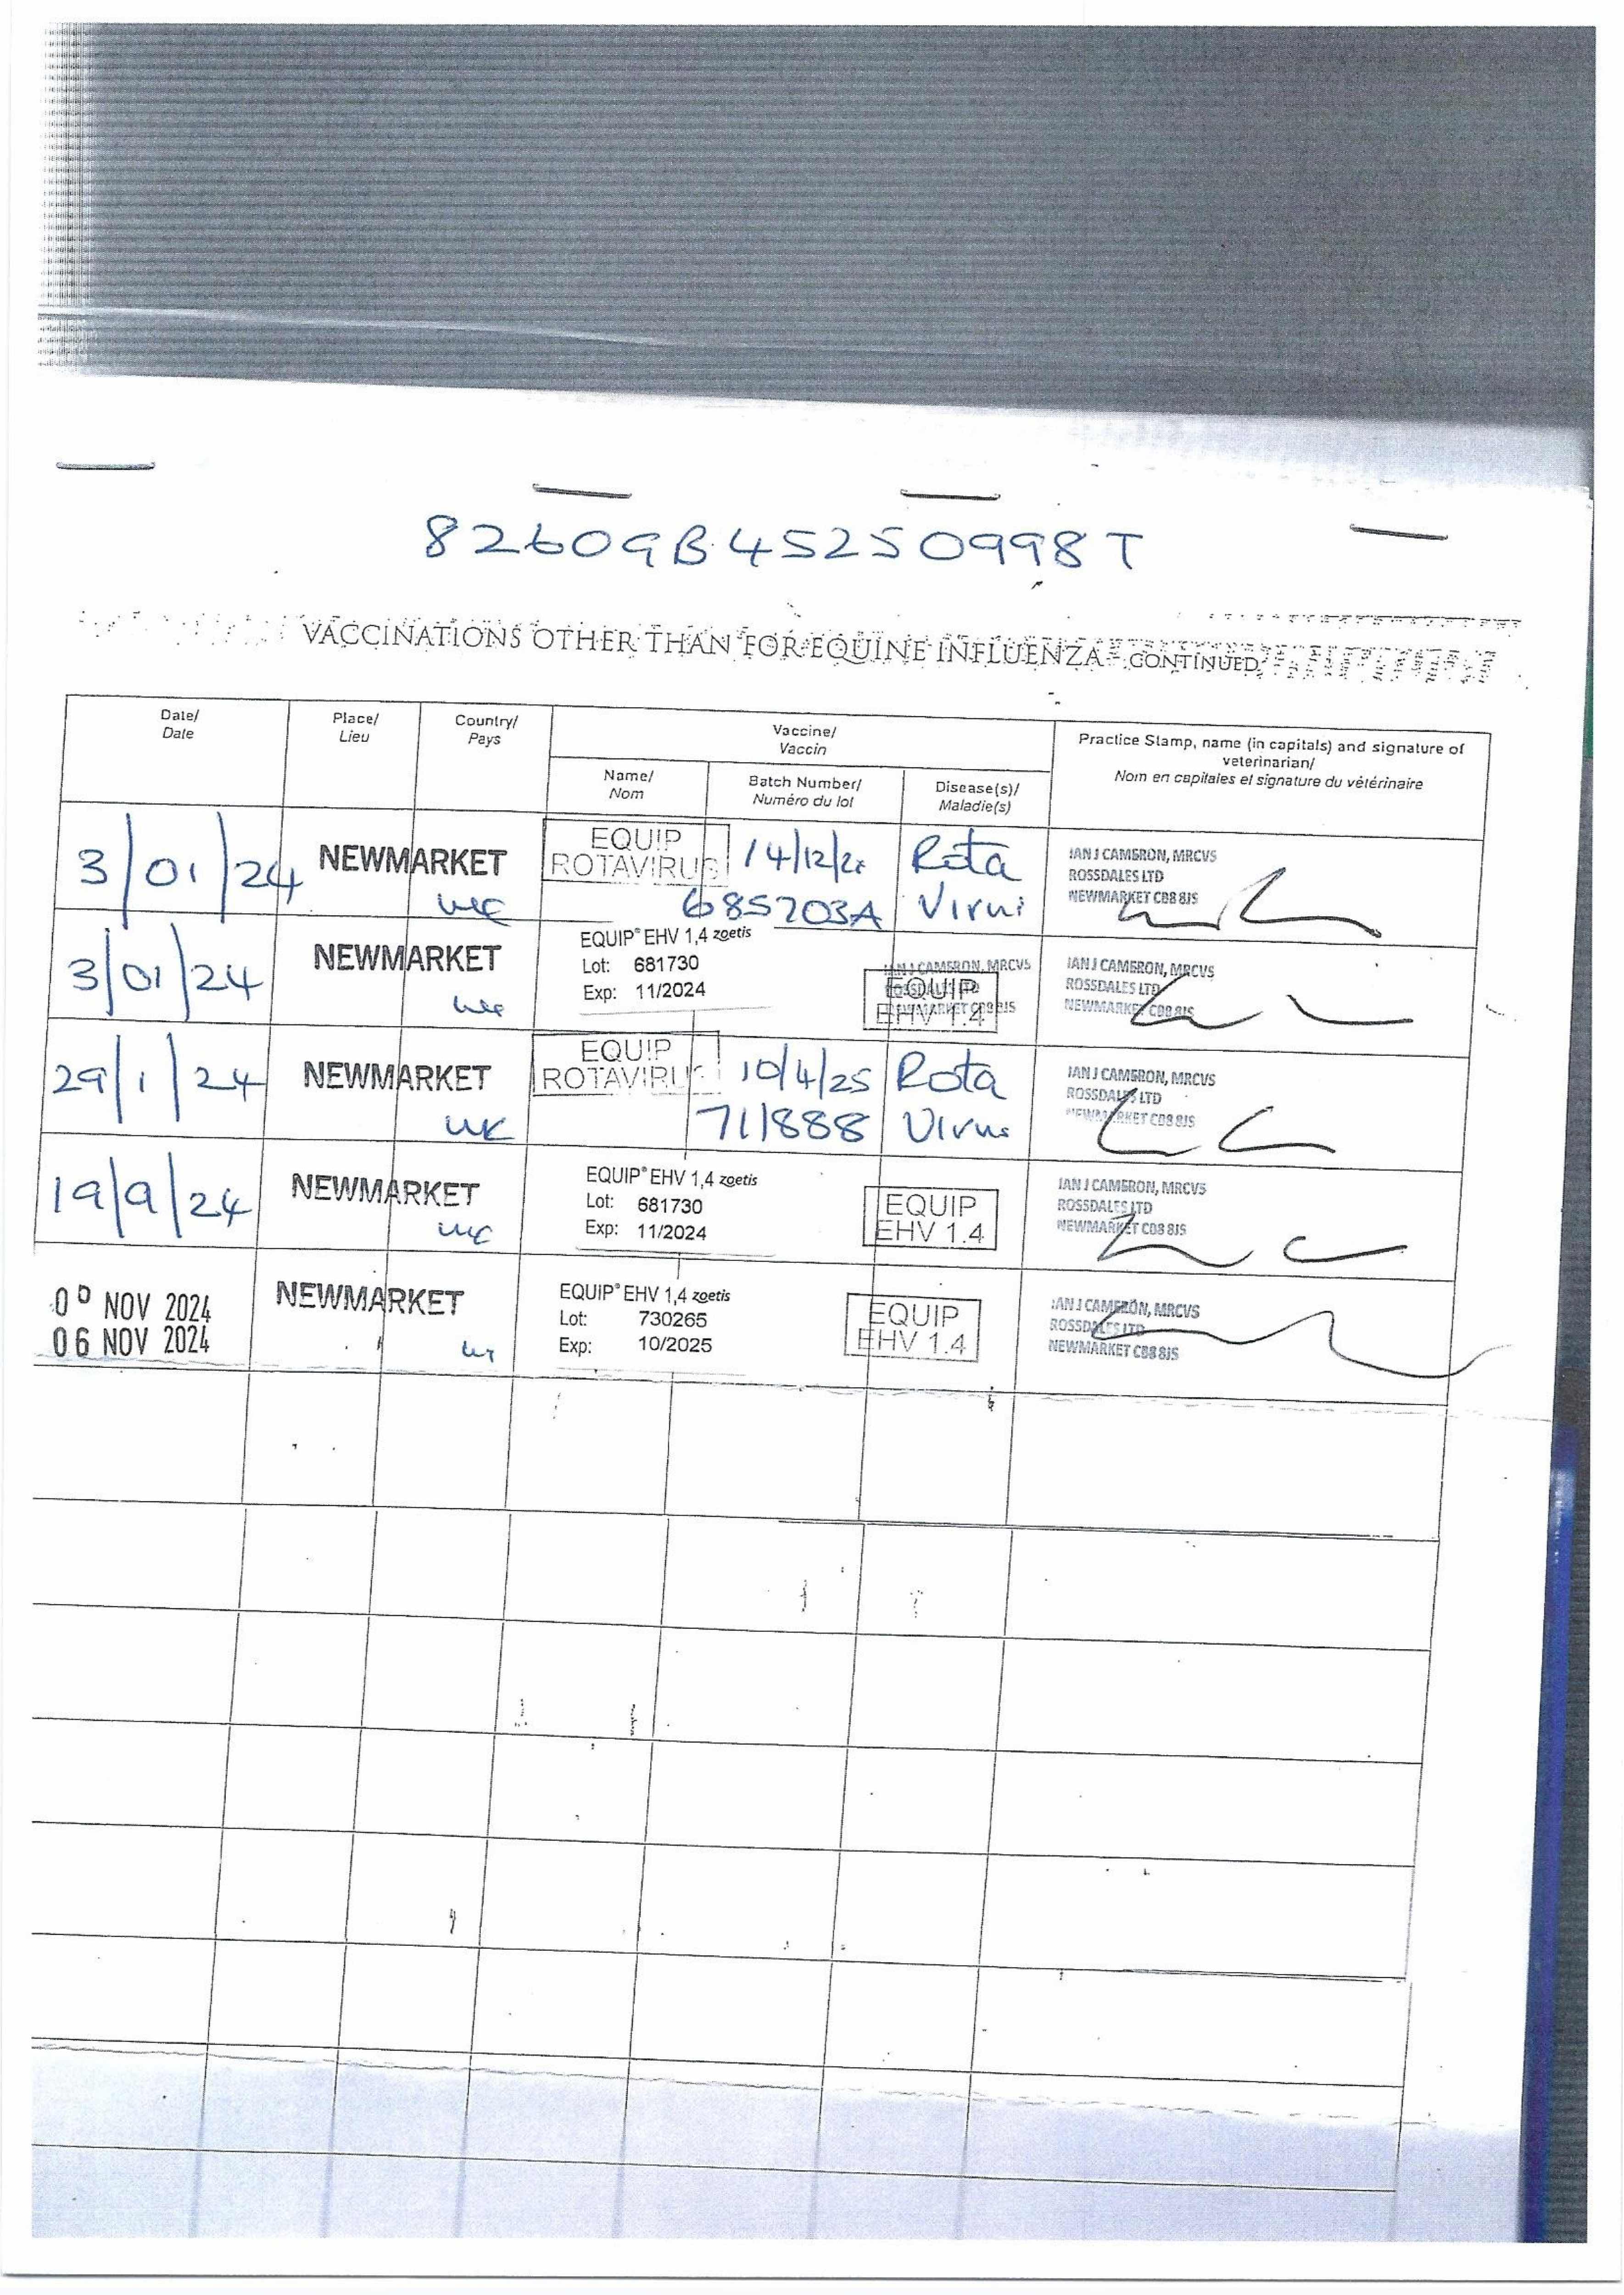 82609B45250998T
VACCINATIONS OTHER THAN FOR EQUINE INFLUENZA - CONTINUED
Date/
Date
Place/
Lieu
Country/
Pays
Vaccine/
Vaccin
Name/
Nom
Batch Number/
Numéro du lot
Disease(s)/
Maladie(s)
Practice Stamp, name (in capitals) and signature of
veterinarian/
Nom en capitales et signature du vétérinaire
3/01/24
NEWMARKET
UK
EQUIP
ROTAVIRUS
14/12/2
685703A
Rota
Virus
IAN J CAMERON, MRCVS
ROSSDALES LTD
NEWMARKET CB8 8JS
3/01/24
NEWMARKET
UK
EQUIP® EHV 1,4 zoetis
Lot: 681730
Exp: 11/2024
IAN J CAMERON, MRCVS
ROSSDALES LTD
NEWMARKET CB8 8JS
EQUIP
EHV 1.4
IAN J CAMERON, MRCVS
ROSSDALES LTD
NEWMARKET CB8 8JS
29/1/24
NEWMARKET
UK
EQUIP
ROTAVIRUS
10/4/25
711888
Rota
Virus
IAN J CAMERON, MRCVS
ROSSDALES LTD
NEWMARKET CB8 8JS
19/9/24
NEWMARKET
UK
EQUIP® EHV 1,4 zoetis
Lot: 681730
Exp: 11/2024
EQUIP
EHV 1.4
IAN J CAMERON, MRCVS
ROSSDALES LTD
NEWMARKET CB8 8JS
NOV 2024
06 NOV 2024
NEWMARKET
UK
EQUIP® EHV 1,4 zoetis
Lot: 730265
Exp: 10/2025
EQUIP
EHV 1.4
IAN J CAMERON, MRCVS
ROSSDALES LTD
NEWMARKET CB8 8JS